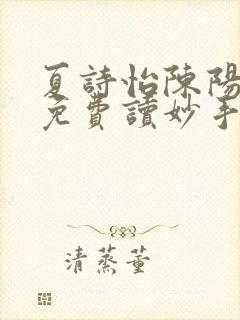 夏詩怡陳陽
免費讀妙手
清蒸董